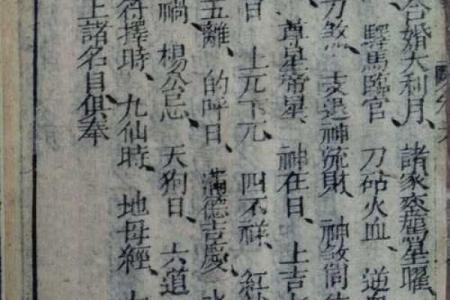 合婚大利月、諸家銮駕星曜、
驛馬臨官 刀砧火血、逆
刀煞 支退神流財、神煞
尊星帝星 神在日、上吉
日 上元下元 四不祥、紅
五離、的呼日、滿德吉慶、
禍、楊公忌、天狗日、六道
符擇時、九仙時、地母經、
上諸名目俱奉